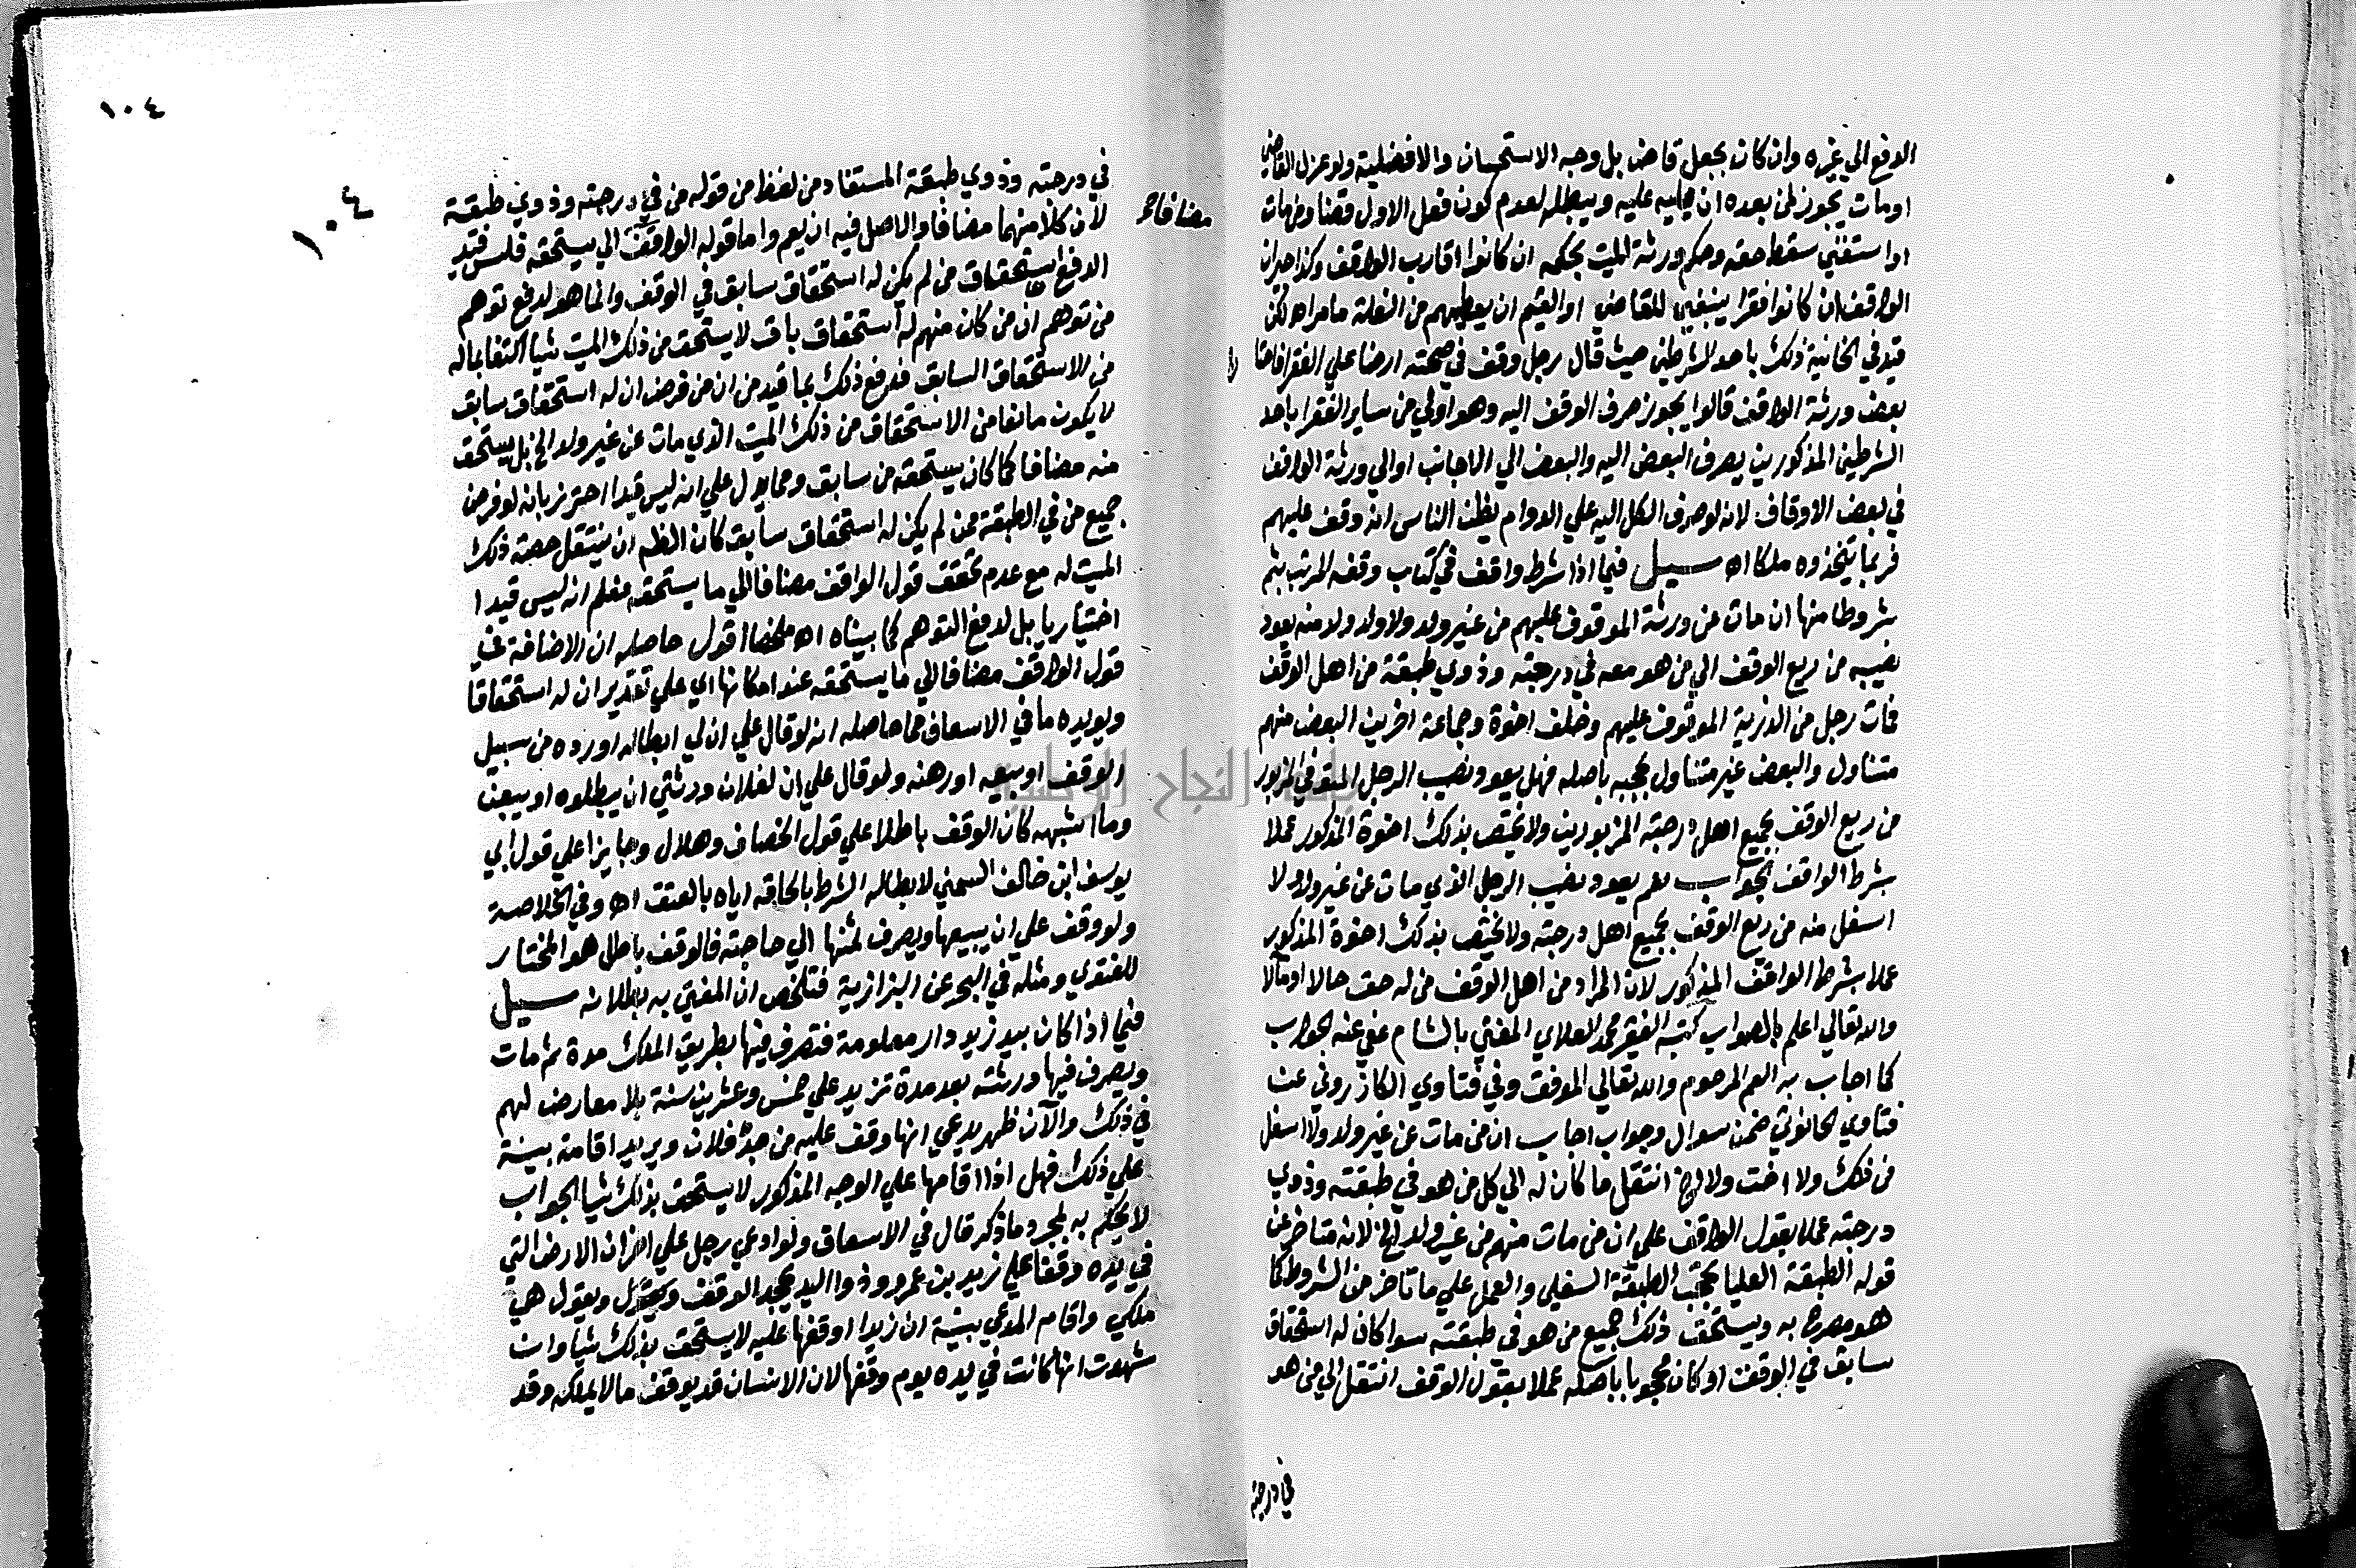 الدفع الي غيره وان كان بجعل قاض بل وجه الاستحسان والافضلية ولو عزل القاضي
او مات يجوز لمن بعده ان عليه ويبطله لعدم كون فعل الاول قضا ومن مات
او استغني سقط حقه وحكم ورثة الميت بحكمه ان كانوا اقارب الواقف وكذا جيران
الواقف ان كانوا فقرا ينبغي للقاضي او القيم ان يعطيهم من الغلة ما مراه لكن
قيد في الخانية ذلك باحد الشرطين حيث قال رجل وقف في صحته ارضا علي الفقرا فاحتا
بعض ورثة الواقف قالوا يجوز صرف الوقف اليه وهو اولي من ساير الفقرا باحد
الشرطين المذكورين يصرف البعض اليه والبعض الي الاجانب او الي ورثة الواقف
في بعض الاوقاف لانه لو صرف الكل اليه علي الدوام يظن الناس انه وقف عليهم
فربما يتخذوه ملكا اه سيل فيما اذا شرط واقف في كتاب وقفه المرتب بثم
بشروط منها ان مات عن ورثة الموقوف عليهم من غير ولد ولا ولد ولد منه يعود
نصيبه من ريع الوقف الي من هو معه في درجته وذوي طبقة من اهل الوقف
فمات رجل من الذرية الموقوف عليهم وخلف اخوة وجماعة اخرين البعض منهم
متناول والبعض غير متناول لحجبه باصله فهل يعود نصيب الرجل المتوفي المزبور
من ريع الوقف لجميع اهل درجته المزبورين ولا يختص بذلك اخوة المذكور عملا
بشرط الواقف الجواب نعم يعود نصيب الرجل الذي مات عن غير ولد ولا
اسفل منه من ريع الوقف لجميع اهل درجته ولا يختص بذلك اخوة المذكور
عملا بشرط الواقف المذكور لان المراد من اهل الوقف من له حق حالا او مآلا
والله تعالي اعلم بالصواب كتبه الفقير محمد العلاي المفتي بالشام عفي عنه الجواب
كما اجاب به العم المرحوم والله تعالي الموفق وفي فتاوي الكازروني عن
فتاوي الحانوتي ضمن سوال وجواب اجاب ان من مات عن غير ولد ولا اسفل
من ذلك ولا اخت ولا اخ انتقل ما كان له الي كل من هو في طبقته وذوي
درجته عملا بقول الواقف علي ان من مات منهم من غير ولد الخ لانه متاخر عن
قوله الطبقة العليا تحجب الطبقة السفلي والعمل علي ما تاخر من الشروط كما
هو مصرح به ويستحق ذلك جميع من هو في طبقته سوا كان له استحقاق
سابق في الوقف او كان محجوبا باصله عملا بقول الواقف انتقل الي من هو
في درجته
١٠٤
١٠٤
مضافا
في درجته وذوي طبقة المستفاد من لفظ من قوله من في درجته وذوي طبقة
لان كلا منهما مضافا والاصل فيه ان يعم واما قوله الواقف الي يستحقه فليس قيد
الدفع استحقاق من لم يكن له استحقاق سابق في الوقف وانما هو لدفع توهم
من توهم ان من كان منهم له استحقاق باق لا يستحق من ذلك الميت شيا اكتفا بماله
من الاستحقاق السابق فدفع ذلك بما قيد من ان من فرض ان له استحقاق سابق
لا يكون مانعا من الاستحقاق من ذلك الميت الذي مات عن غير ولد الخ بل يستحق
منه مضافا كما كان يستحقه من سابق ومما يدل علي انه ليس قيدا احترز بانه لو فرض
جميع من في الطبقة ممن لم يكن له استحقاق سابق كان الظم ان ينتقل حصة ذلك
الميت له مع عدم تحقق قول الواقف مضافا الي ما يستحقه فعلم انه ليس قيدا
اختياريا بل لدفع التوهم كما بيناه اه ملخصا اقول حاصله ان الاضافة في
قول الواقف مضافا الي ما يستحقه عند امكانها اي علي تقدير ان له استحقاقا
ويويده ما في الاسعاف مما حاصله انه لو قال علي ان لي ابطاله او رده من سبيل
الوقف او بيعه او رهنه ولو قال علي ان لفلان ورثتي ان يبطلوه او يبيعن
وما اشبهه كان الوقف باطلا علي قول الخصاف وهلال وجايزا علي قول ابي
يوسف ابن خالف السمتي لابطاله الشرط بالحاقه اياه بالعتق اه وفي الخلاصة
ولو وقف علي ان يبيعها ويصرف ثمنها الي حاجته فالوقف باطل هو المختار
للفتوي ومثله في البحر عن البزازية فتلخص ان المفتي به بطلانه سيل
فيما اذا كان بيد زيد دار معلومة فتصرف فيها بطريق الملك مدة ثم مات
ويصرف فيها ورثته بعد مدة تزيد علي خمس وعشرين سنة بلا معارض لهم
في ذلك والآن ظهر يدعي انها وقف عليه من جد فلان ويريد اقامة بينة
علي ذلك فهل اذا اقامها علي الوجه المذكور لا يستحق بذلك شيا الجواب
لا يحكم به لمجرد ما ذكر قال في الاسعاف ولو ادعي رجل علي اخر ان الارض التي
في يده وقفا علي زيد بن عمرو وذو اليد يجحد الوقف ويقول هي
ملكي واقام المدعي بينة ان زيدا اوقفها عليه لا يستحق بذلك شيا وان
شهدت انها كانت في يده يوم وقفها لان الانسان قد يوقف مالا يملكه وقد